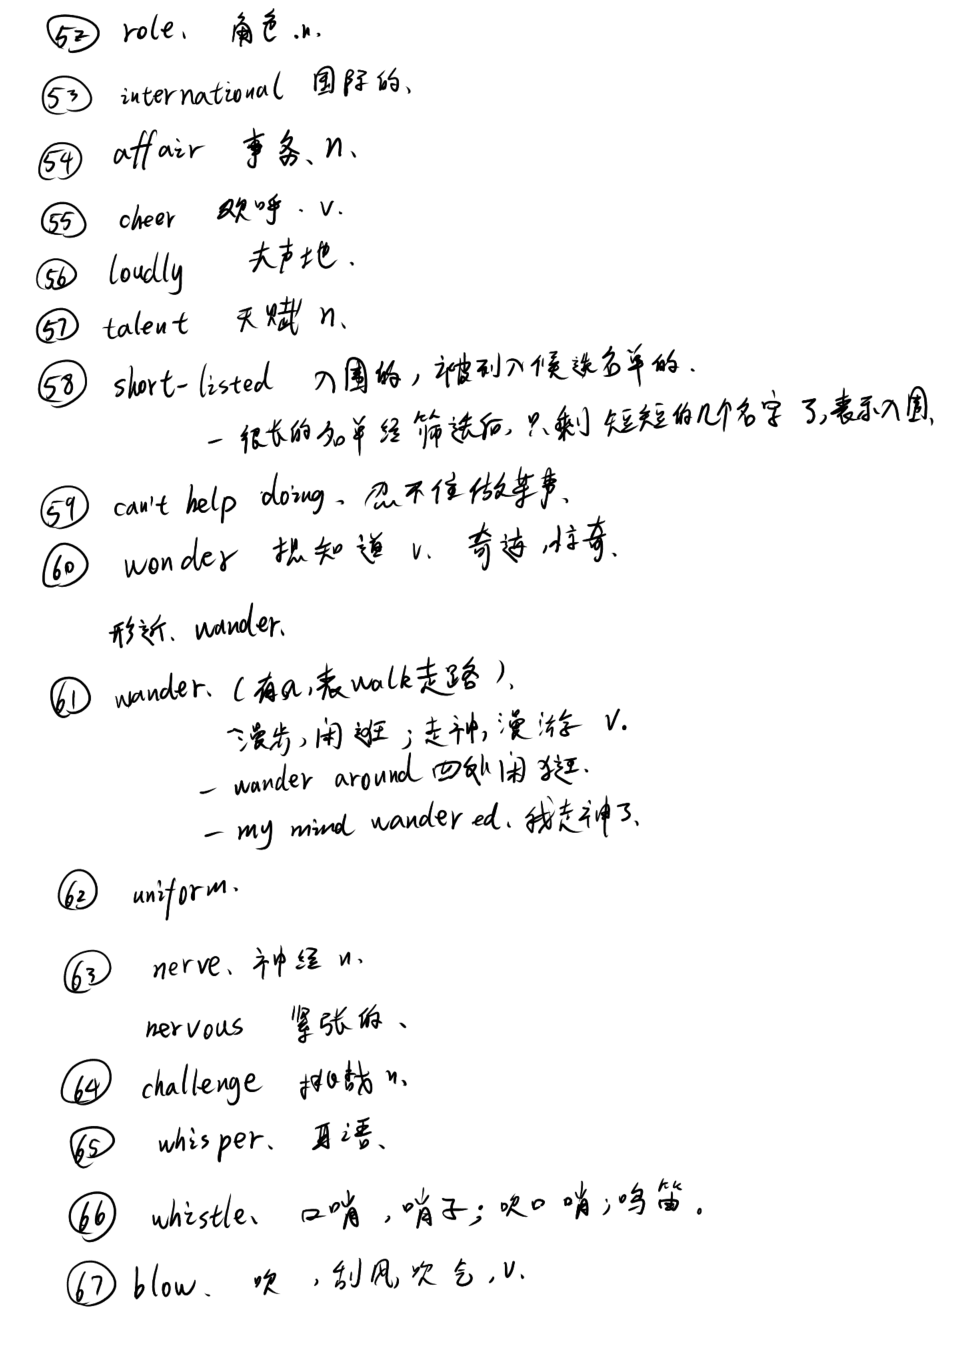 52 role、 角色.n.
53 international 国际的、
54 affair 事务、n、
55 cheer 欢呼. v.
56 loudly 大声地.
57 talent 天赋 n、
58 short-listed 入围的，被列入候选名单的.
— 很长的名单经筛选后，只剩短短的几个名字了,表示入围、
59 can't help doing、忍不住做某事、
60 wonder 想知道 v. 奇迹,惊奇、
形近、wander、
61 wander、(有a,表walk走路)、
漫步,闲逛;走神,漫游 v.
— wander around 四处闲逛.
— my mind wandered、我走神了、
62 uniform.
63 nerve、神经 n.
nervous 紧张的、
64 challenge 挑战 n、
65 whisper、耳语、
66 whistle、口哨,哨子;吹口哨;鸣笛.
67 blow、吹,刮风,吹气,v.